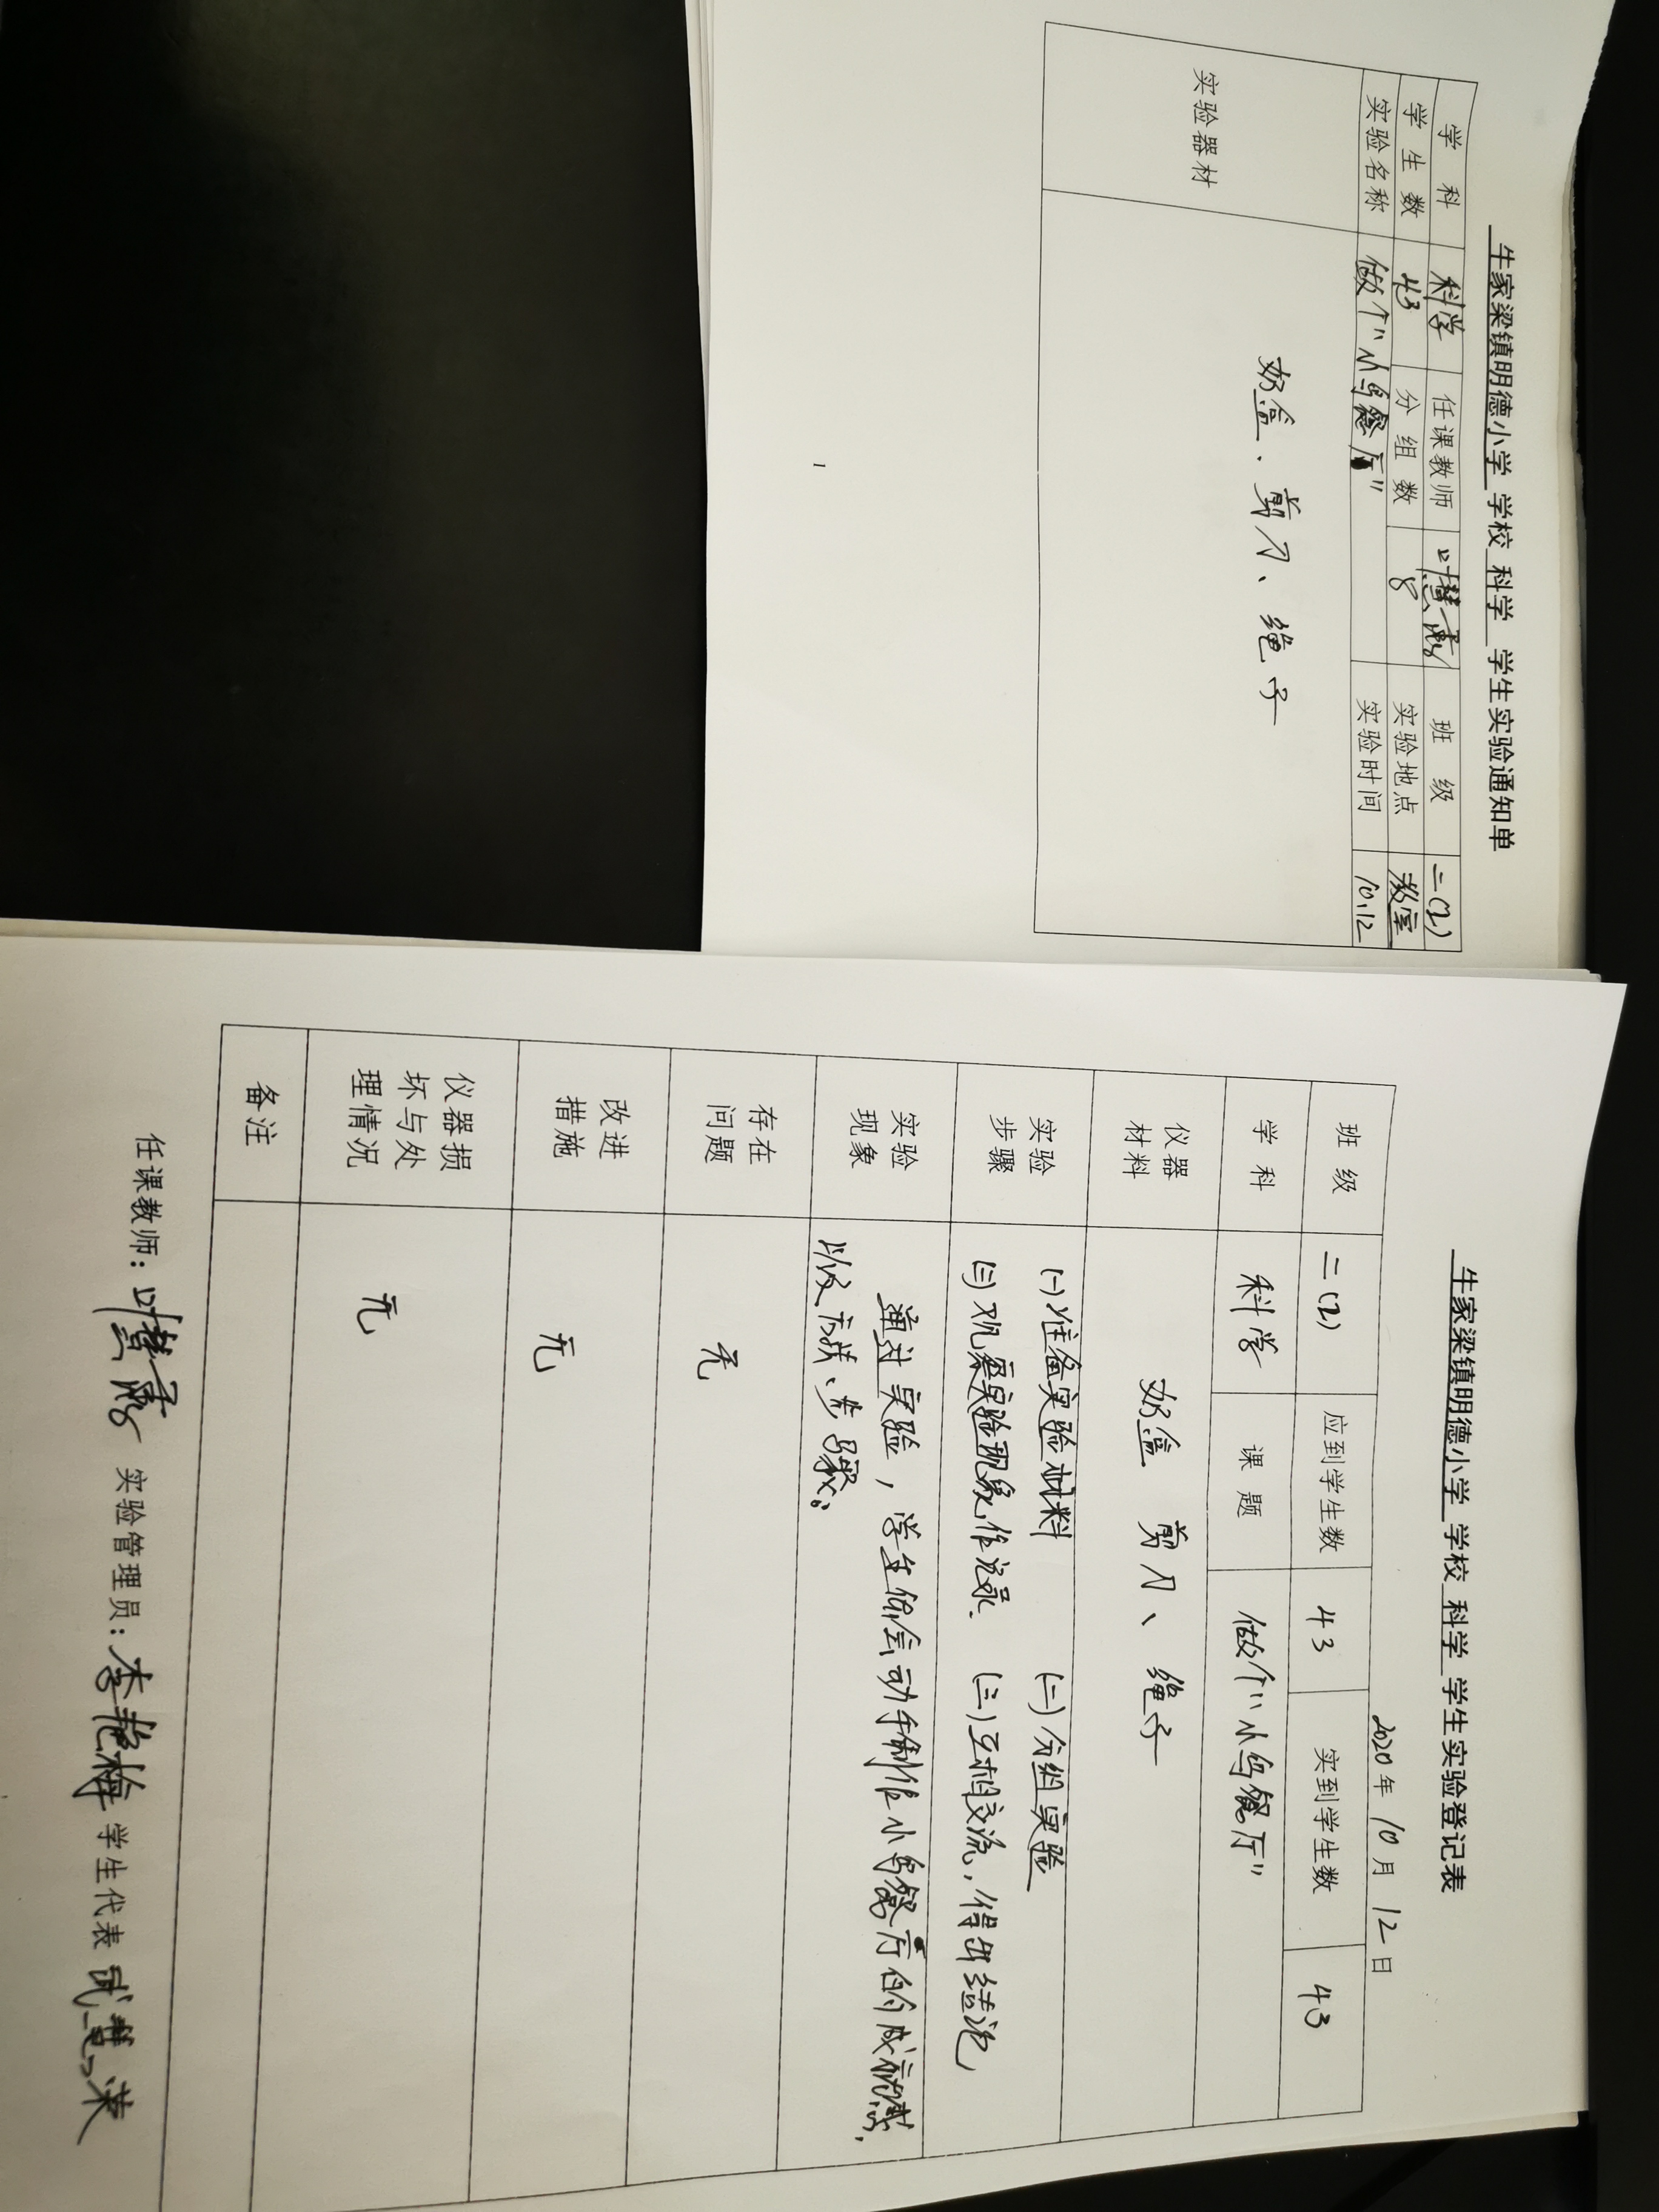 牛家梁镇明德小学 学校 科学 学生实验通知单
学 科 科学 任课教师 叶慧霞 班 级 二(2)
学 生 数 43 分 组 数 8 实验地点 教室
实验名称 做个"小鸟餐厅" 实验时间 10.12
实验器材 奶盒、剪刀、绳子
1
牛家梁镇明德小学 学校 科学 学生实验登记表
2020年 10月 12日
班 级 二(2) 应到学生数 43 实到学生数 43
学 科 科学 课 题 做个"小鸟餐厅"
仪器
材料
奶盒 剪刀、绳子
实验
步骤
(一)准备实验材料 (二)分组实验
(三)观察实验现象,作记录. (三)互相交流,得出结论
实验
现象
通过实验,学生体会动手制作小鸟餐厅的成就感,
以及方法、步骤。
存在
问题
无
改进
措施
无
仪器损
坏与处
理情况
无
备注
任课教师: 叶慧霞 实验管理员: 李艳梅 学生代表